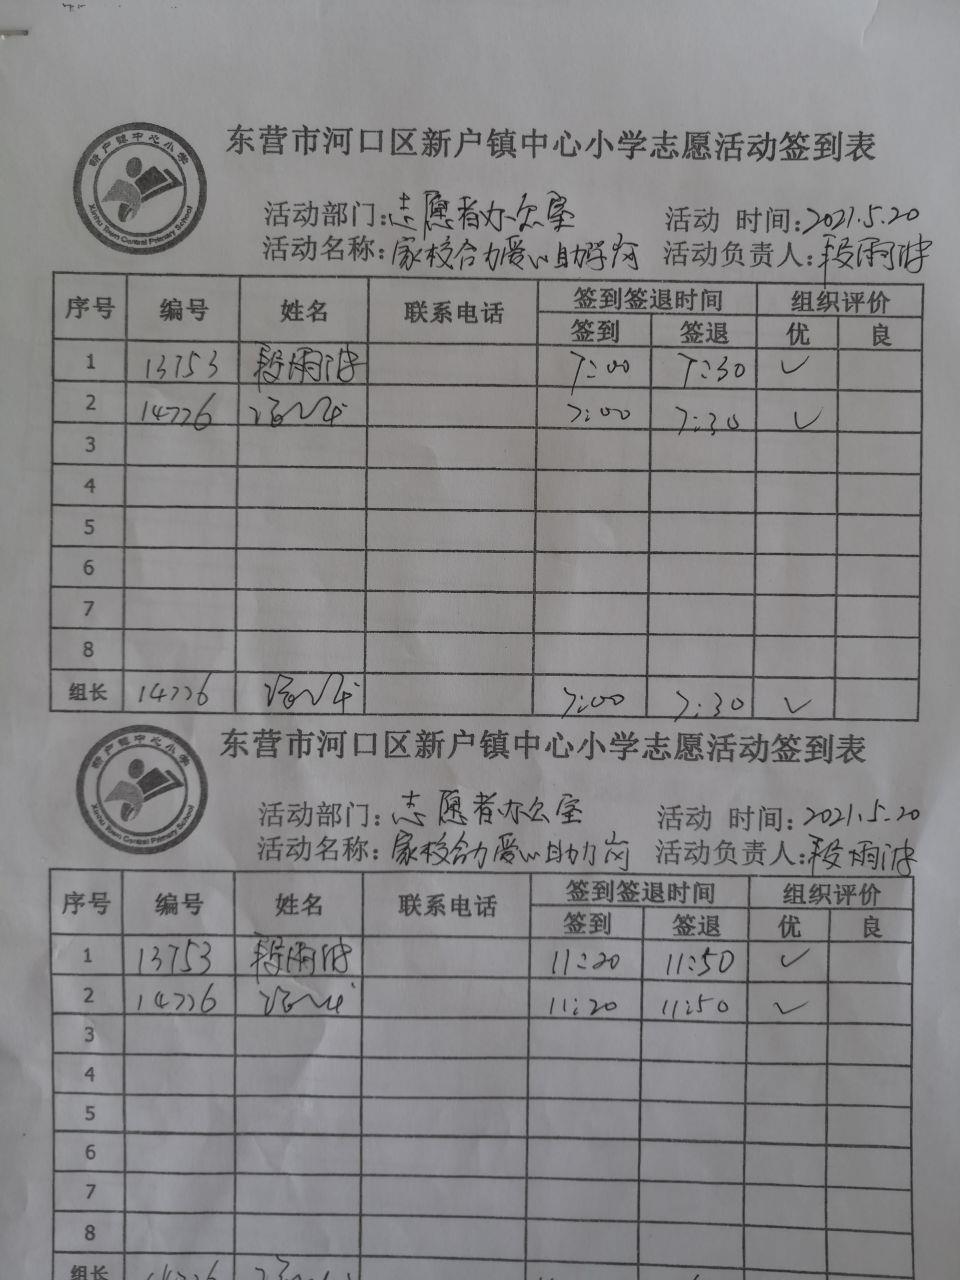 新户镇中心小学
Xinhu Town Central Primary School
东营市河口区新户镇中心小学志愿活动签到表
活动部门:志愿者办公室 活动 时间:2021.5.20
活动名称:家校合力爱心助学岗 活动负责人:段雨
序号 编号 姓名 联系电话 签到签退时间 组织评价
签到 签退 优 良
1 13753 段雨 7:00 7:30 ✓
2 14776 7:00 7:30 ✓
3
4
5
6
7
8
组长 14776 7:00 7:30 ✓
新户镇中心小学
Xinhu Town Central Primary School
东营市河口区新户镇中心小学志愿活动签到表
活动部门:志愿者办公室 活动 时间:2021.5.20
活动名称:家校合力爱心助力岗 活动负责人:段雨
序号 编号 姓名 联系电话 签到签退时间 组织评价
签到 签退 优 良
1 13753 段雨 11:20 11:50 ✓
2 14776 11:20 11:50 ✓
3
4
5
6
7
8
组长 14776